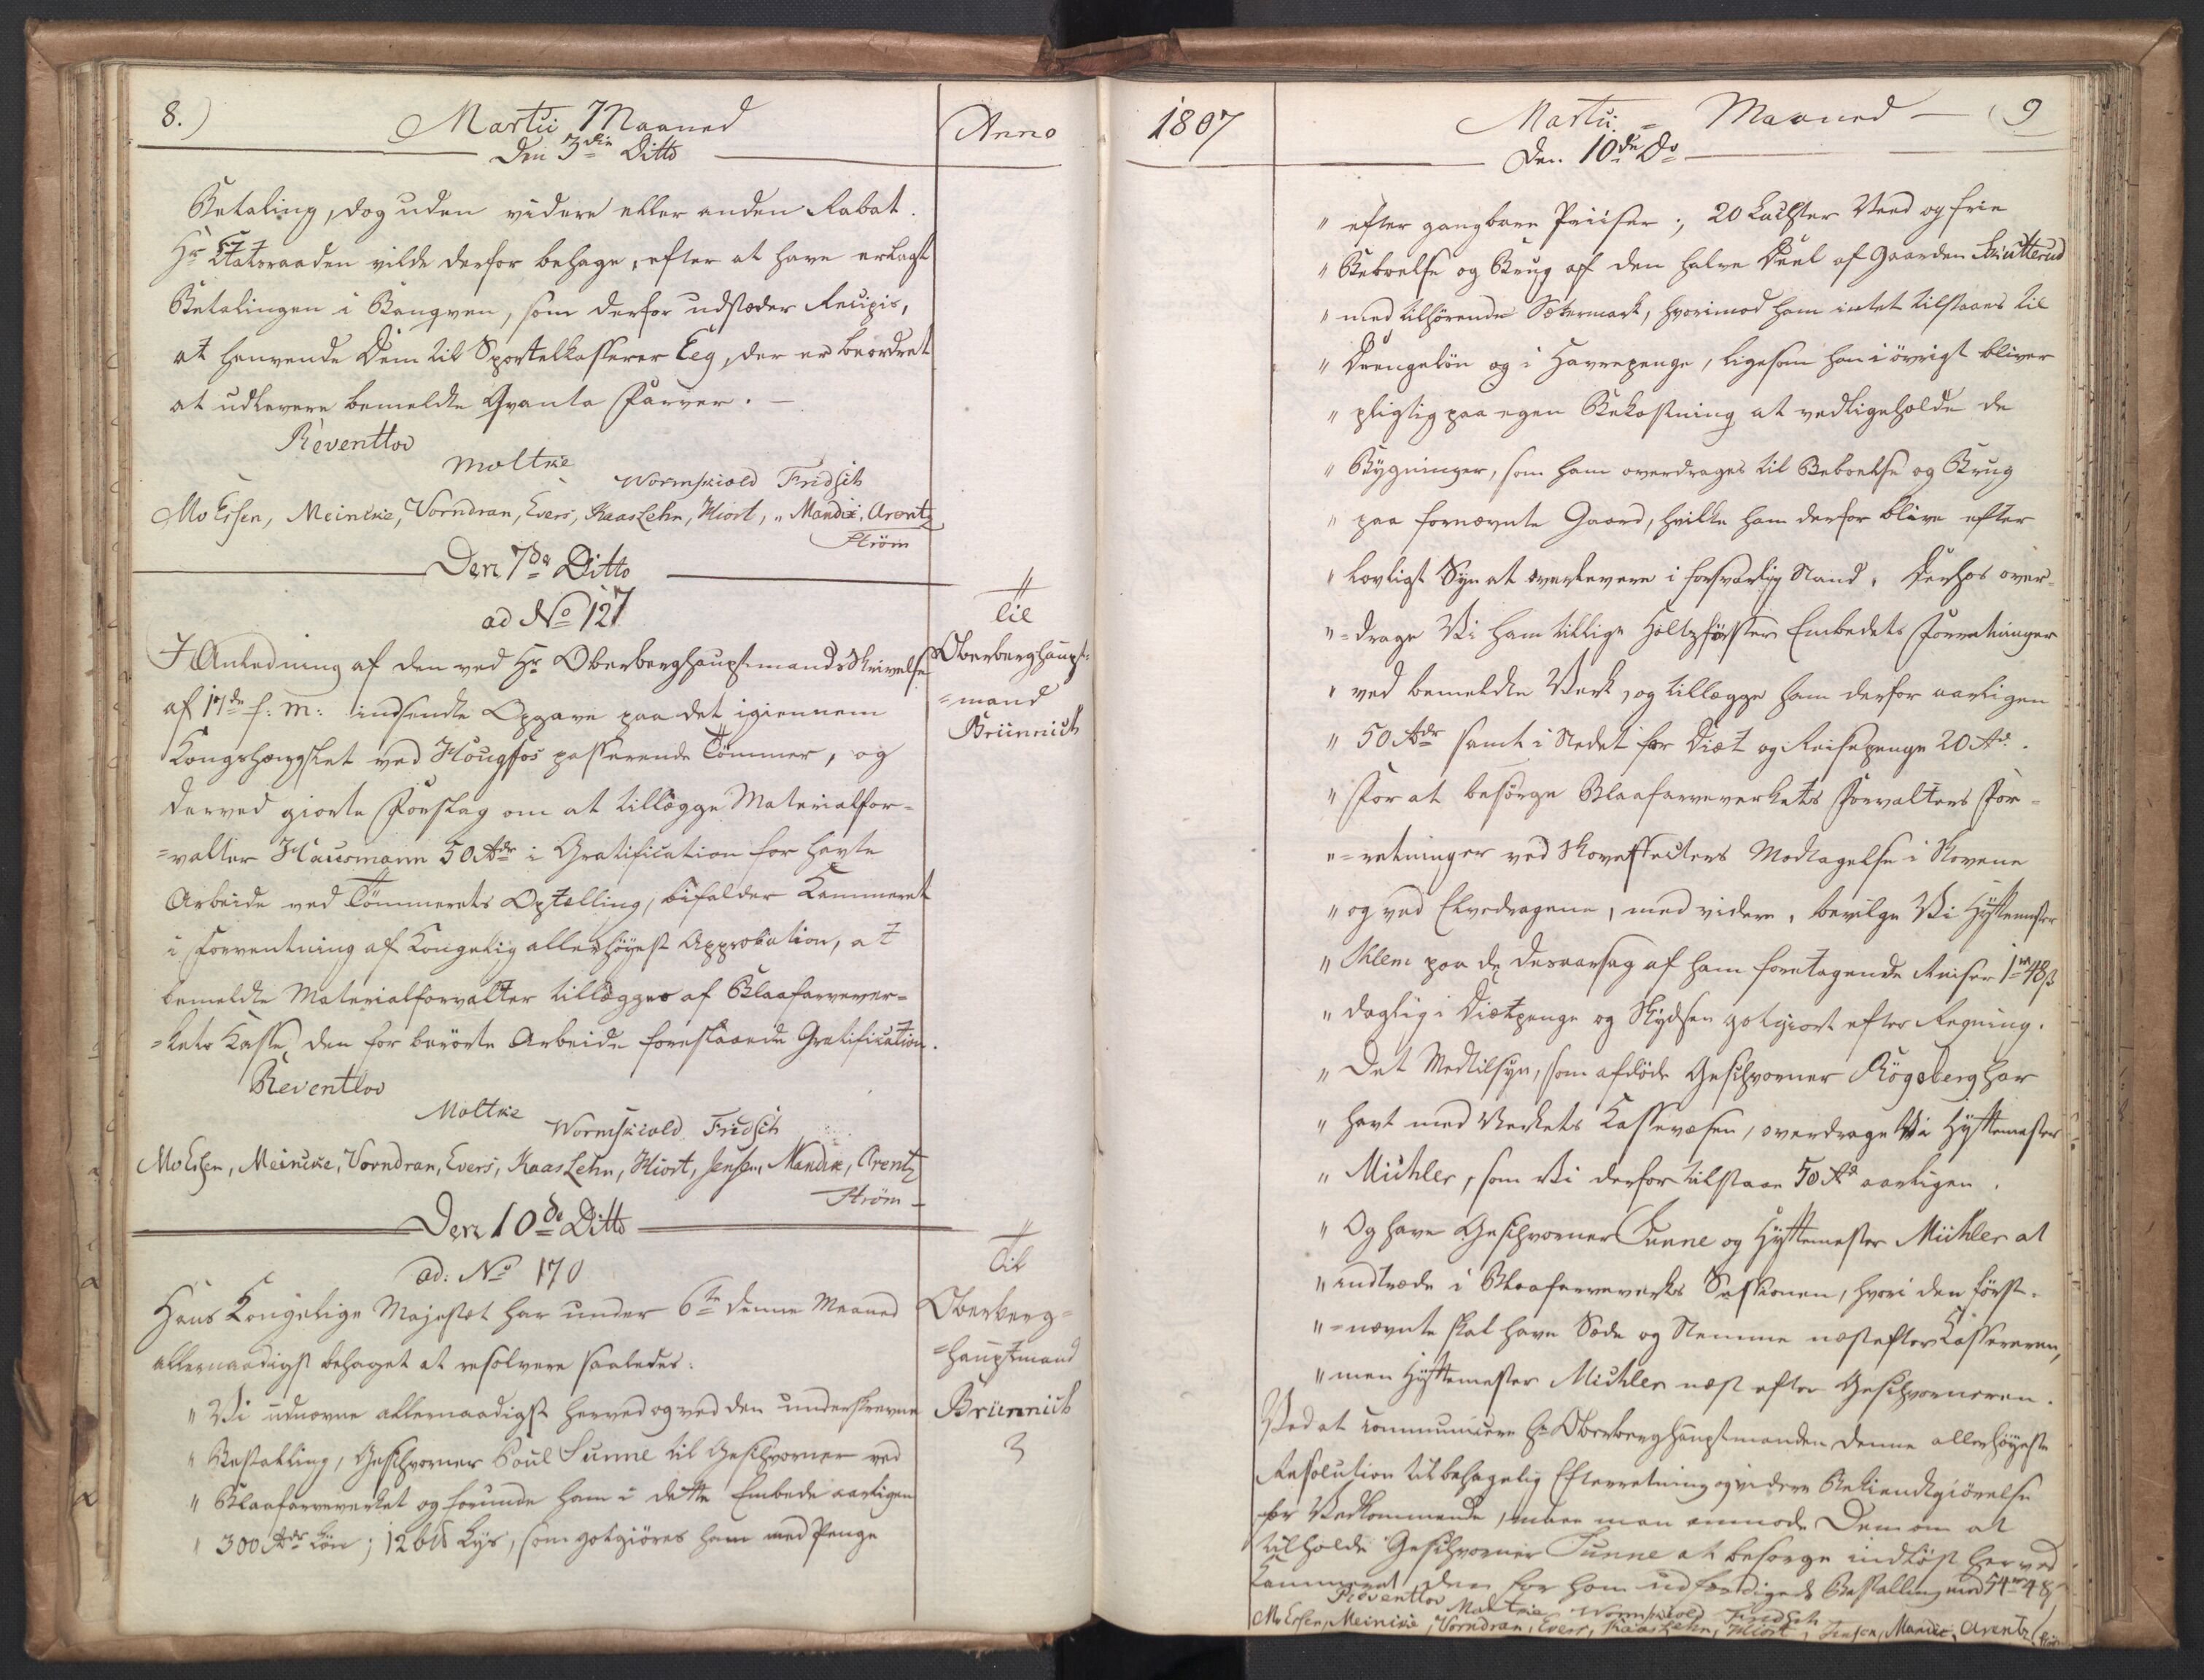 8.)
Martii Maaned
Anno
Den 3die Ditto
Betaling, dog uden videre eller anden Rabat.
Hr Etatsraaden vilde derfor behage, efter at have erlagt
Betalingen i Banqven, som derfor udstæder Recipis,
at henvende Dem til Sportelkasserer Eeg, der er beordret
at udlevere bemeldte Qvanta Farver. —
Reventlov
Moltke
Wormskiold Fridsch
MvEssen, Meincke, Vorndran, Evers, KaasLehn, Hiort, „ Mandix, Arentz
Strøm
Den 7de Ditto
ad No 127
Til
Oberberghaupt=
=mand
Brünnich
I Anledning af den ved Hr Oberberghauptmands Skrivelse
af 17de f: M: indsendte Opgave paa det igiennem
Kongshængslet ved Hougfos passerende Tømmer, og
derved giorte Forslag om at tillægge Materialfor=
=valter Hausmann 50 Rdr i Gratification for havte
Arbeide ved Tømmerets Optælling, bifalder Kammeret
i Forventning af Kongelig allerhøyest Approbation, at
bemeldte Materialforvalter tillægges af Blaafarvever=
=kets Kasse den for berørte Arbeide foreslaaede Gratification.
Reventlov
Moltke
Wormskiold Fridsch
MvEssen, Meincke, Vorndran, Evers, KaasLehn, Hiort, Jensen, Mandix, Arentz
Strøm
Den 10de Ditto
ad: No 170
Til
Oberberg=
=hauptmand
Brünnich
3
Hans Kongelige Majestæt har under 6te denne Maaned
allernaadigst behaget at resolvere saaledes:
„ Vi udnævne allernaadigst herved og ved den underskrevne
„ Bestalling, Geschworner Poul Sunne til Geschworner ved
„ Blaafarveverket og forunde ham i dette Embede aarligen
„ 300 Rdr Løn; 126 lb Lys, som godtgiøres ham med Penge
1807
Martii = Maaned — (9
Den 10de Do
„ efter gangbare Priiser; 20 Lachter Veed og frie
„ Beboelse og Brug af den halve Deel af Gaarden Skutterud
„ med tilhørende Sætermark, hvorimod ham intet tilstaaes til
„ Drengeløn og i Havrepenge, ligesom han i øvrigt bliver
„ pligtig paa egen Bekostning at vedligeholde de
„ Bygninger, som ham overdrages til Beboelse og Brug
„ paa fornævnte Gaard, hvilke ham derfor blive efter
„ lovligt Syn at overlevere i forsvarlig Stand. Derhos over=
„ =drage Vi ham tillige Holtzførster Embedets Forretninger
„ ved bemeldte Verk, og tillægge ham derfor aarligen
„ 50 Rdr samt i Stedet for Diæt og Reisepenge 20 Rd.
„ For at besørge Blaafarveverkets Forvalters For=
„ =retninger ved Skoveffecters Modtagelse i Skovene
„ og ved Elvedragene, med videre, bevilge Vi Hyttemester
„ Klem paa de desaarsag af ham foretagende Reiser 1 48 ß
„ daglig i Diætpenge og Skydsen godtgiort efter Regning.
„ Det Medtilsyn, som afdøde Geschworner Rögeberg har
„ havt med Verkets Kassevæsen, overdrage Vi Hyttemester
„ Mühler, som Vi derfor tilstaae 50 Rd aarligen.
„ Og have Geschworner Sunne og Hyttemester Mühler at
„ indtræde i Blaafarveverks Sessionen, hvori den først=
„ =nævnte skal have Sæde og Stemme næst efter Kassereren,
„ men Hyttemester Mühler næst efter Geschworneren.
Ved at communicere Hr Oberberghauptmanden denne allerhøyeste
Resolution til behagelig Efterretning og videre Bekiendtgiørelse
for Vedkommende, maae man anmode Dem om at
tilholde Geschworner Sunne at besørge indløst her ved
Kammeret den for ham udfærdigede Bestalling med 54 48 ß
Reventlov Moltke Wormskiold Fridsch
MvEssen, Meincke, Vorndran, Evers, KaasLehn, Hiort, Jensen, Mandix, Arentz